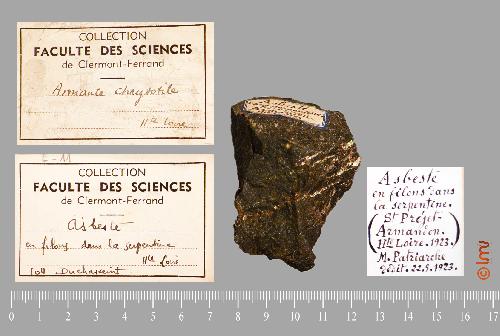 COLLECTION
FACULTE DES SCIENCES
de Clermont-Ferrand
Amiante chrysotile
Hte Loire
E-11
COLLECTION
FACULTE DES SCIENCES
de Clermont-Ferrand
Asbeste
en filons dans la serpentine
Hte Loire
Coll Duchasseint
Asbeste
en filons dans
la serpentine.
(St Préjet-
Armandon.)
Hte Loire. 1923.
M. Patriarche
dédit. 22.5.1923.
© lmv
0 1 2 3 4 5 6 7 8 9 10 11 12 13 14 15 16 17